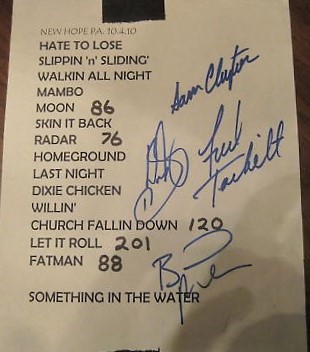 NEW HOPE P.A. 10.4.10
HATE TO LOSE
SLIPPIN 'n' SLIDING'
WALKIN ALL NIGHT
MAMBO
MOON 86
SKIN IT BACK
RADAR 76
HOMEGROUND
LAST NIGHT
DIXIE CHICKEN
WILLIN'
CHURCH FALLIN DOWN 120
LET IT ROLL 201
FATMAN 88
SOMETHING IN THE WATER
Sam Clayton
Fred
Tackett